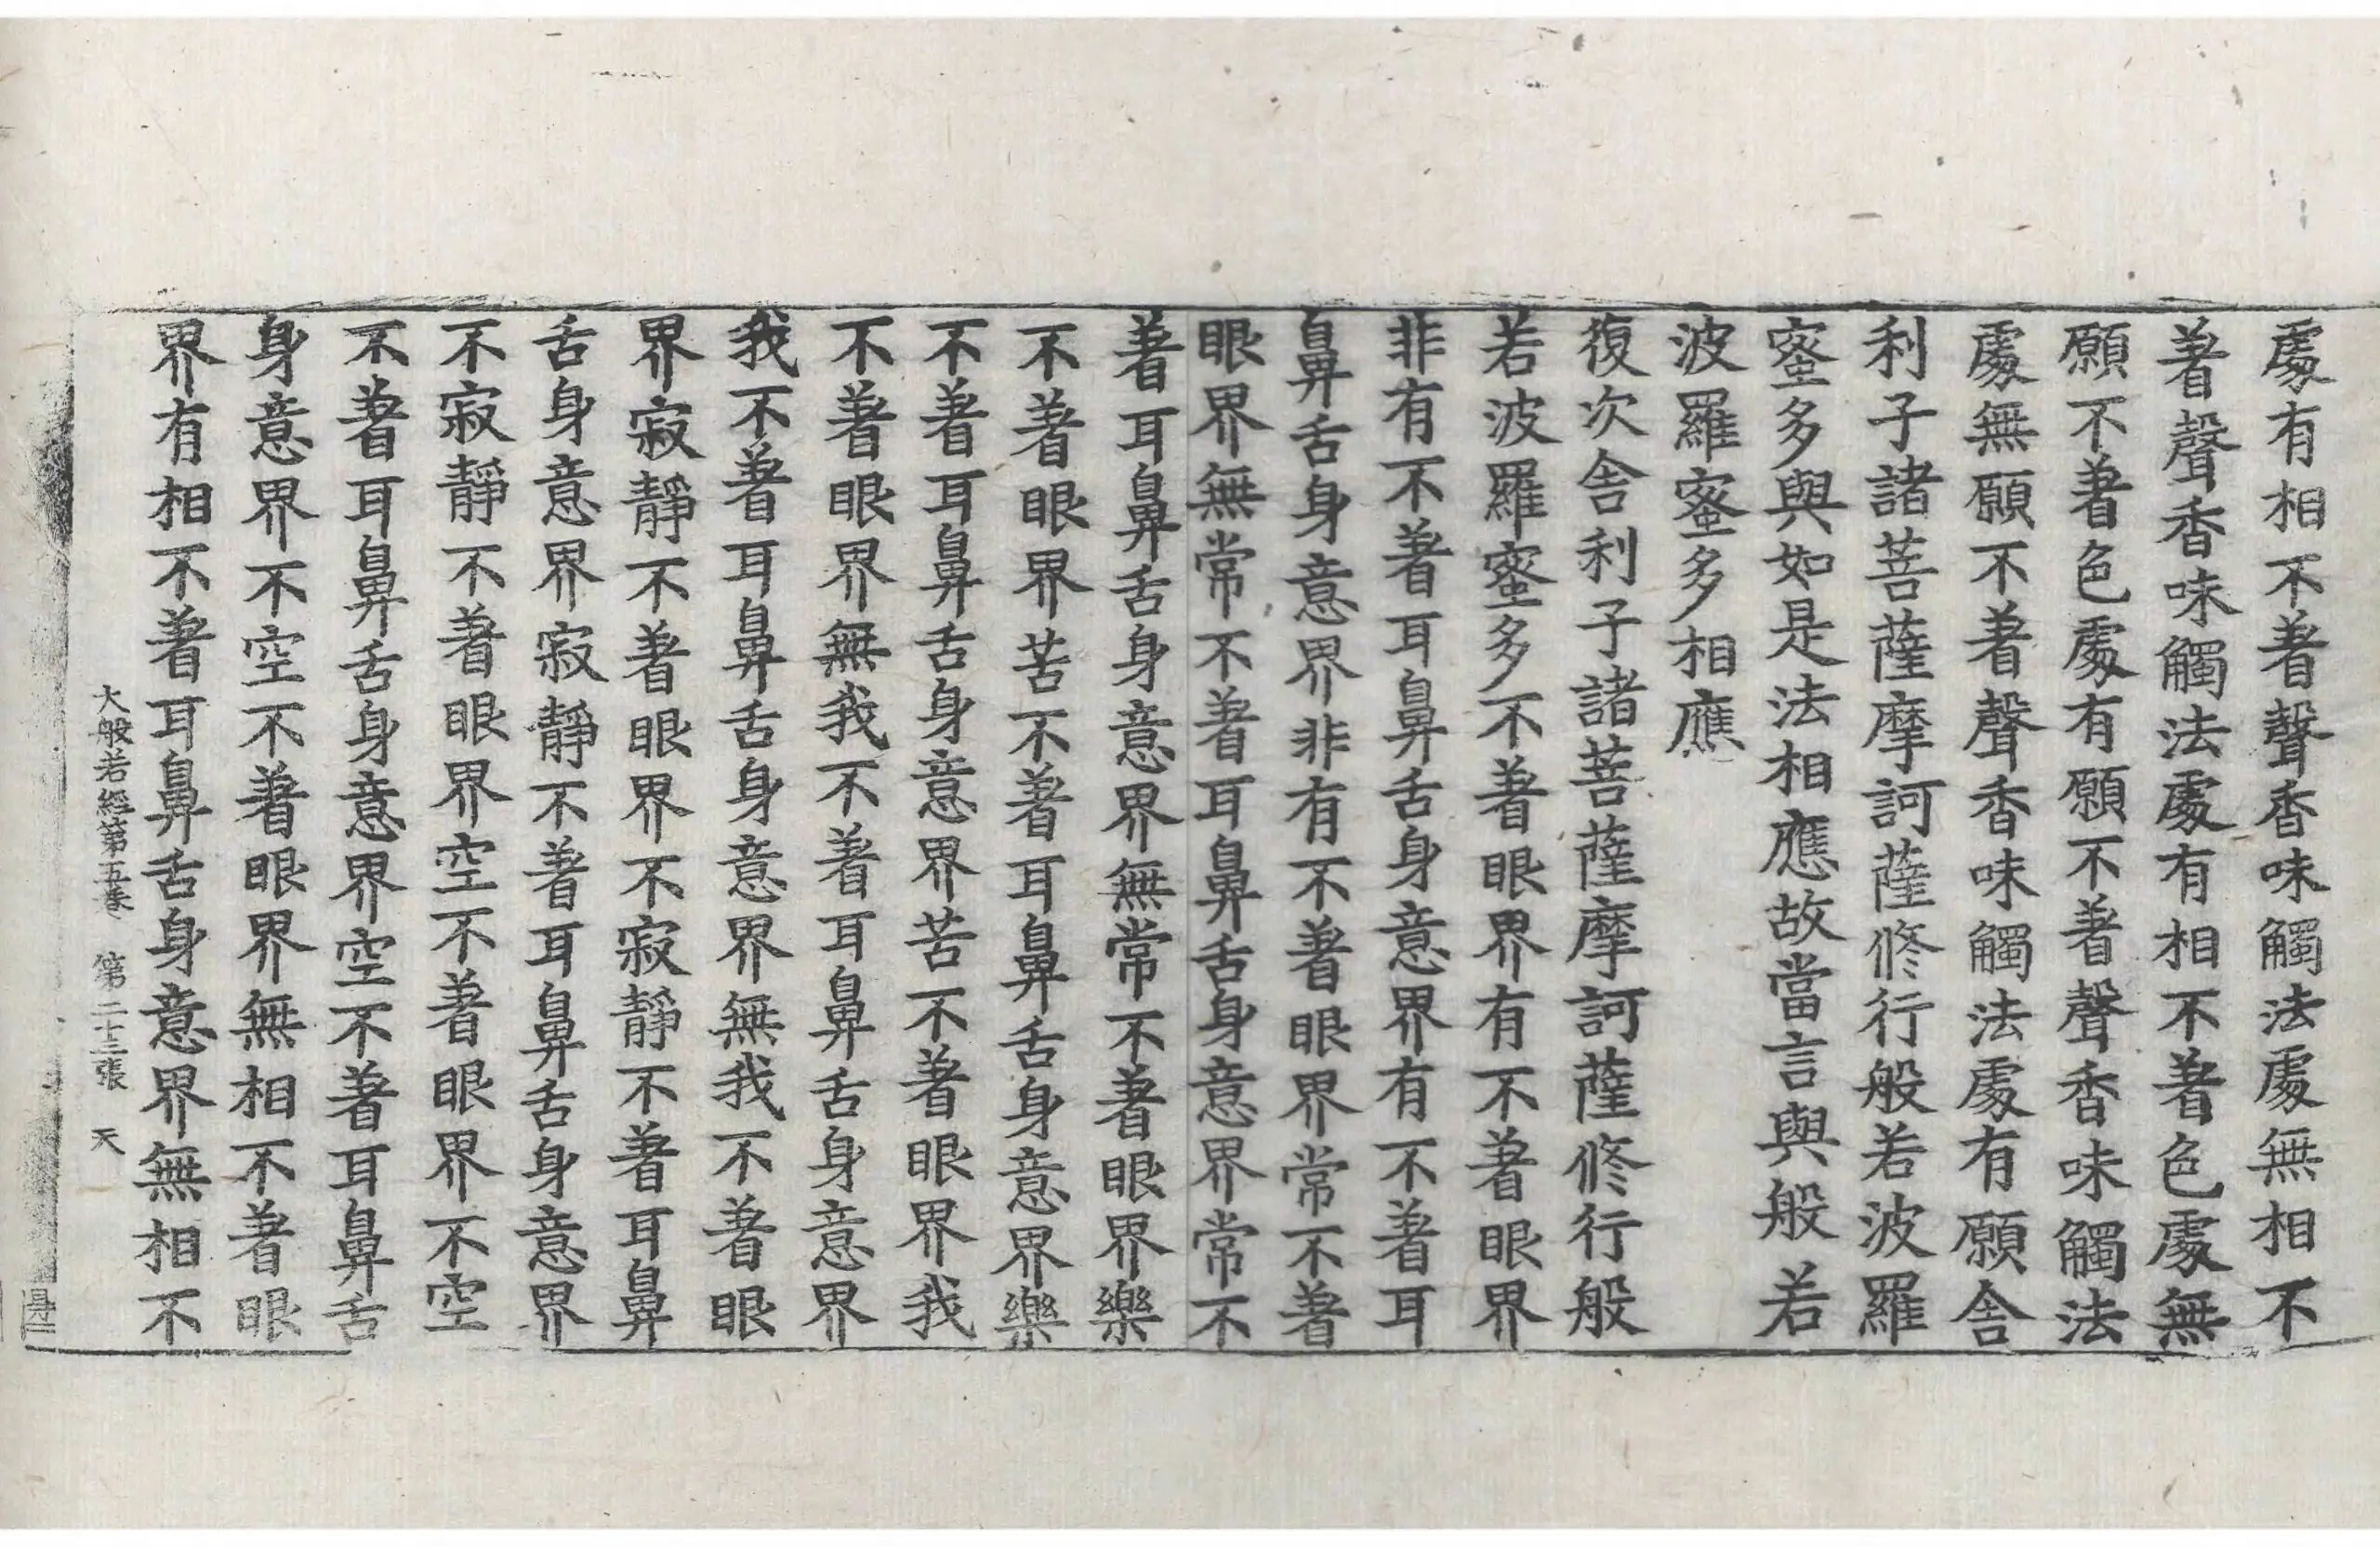 處有相不著聲香味觸法處無相不
著聲香味觸法處有相不著色處無
願不著色處有願不著聲香味觸法
處無願不著聲香味觸法處有願舍
利子諸菩薩摩訶薩修行般若波羅
蜜多與如是法相應故當言與般若
波羅蜜多相應
復次舍利子諸菩薩摩訶薩修行般
若波羅蜜多不著眼界有不著眼界
非有不著耳鼻舌身意界有不著耳
鼻舌身意界非有不著眼界常不著
眼界無常不著耳鼻舌身意界常不
著耳鼻舌身意界無常不著眼界樂
不著眼界苦不著耳鼻舌身意界樂
不著耳鼻舌身意界苦不著眼界我
不著眼界無我不著耳鼻舌身意界
我不著耳鼻舌身意界無我不著眼
界寂靜不著眼界不寂靜不著耳鼻
舌身意界寂靜不著耳鼻舌身意界
不寂靜不著眼界空不著眼界不空
不著耳鼻舌身意界空不著耳鼻舌
身意界不空不著眼界無相不著眼
界有相不著耳鼻舌身意界無相不
大般若經第五卷 第二十三張 天